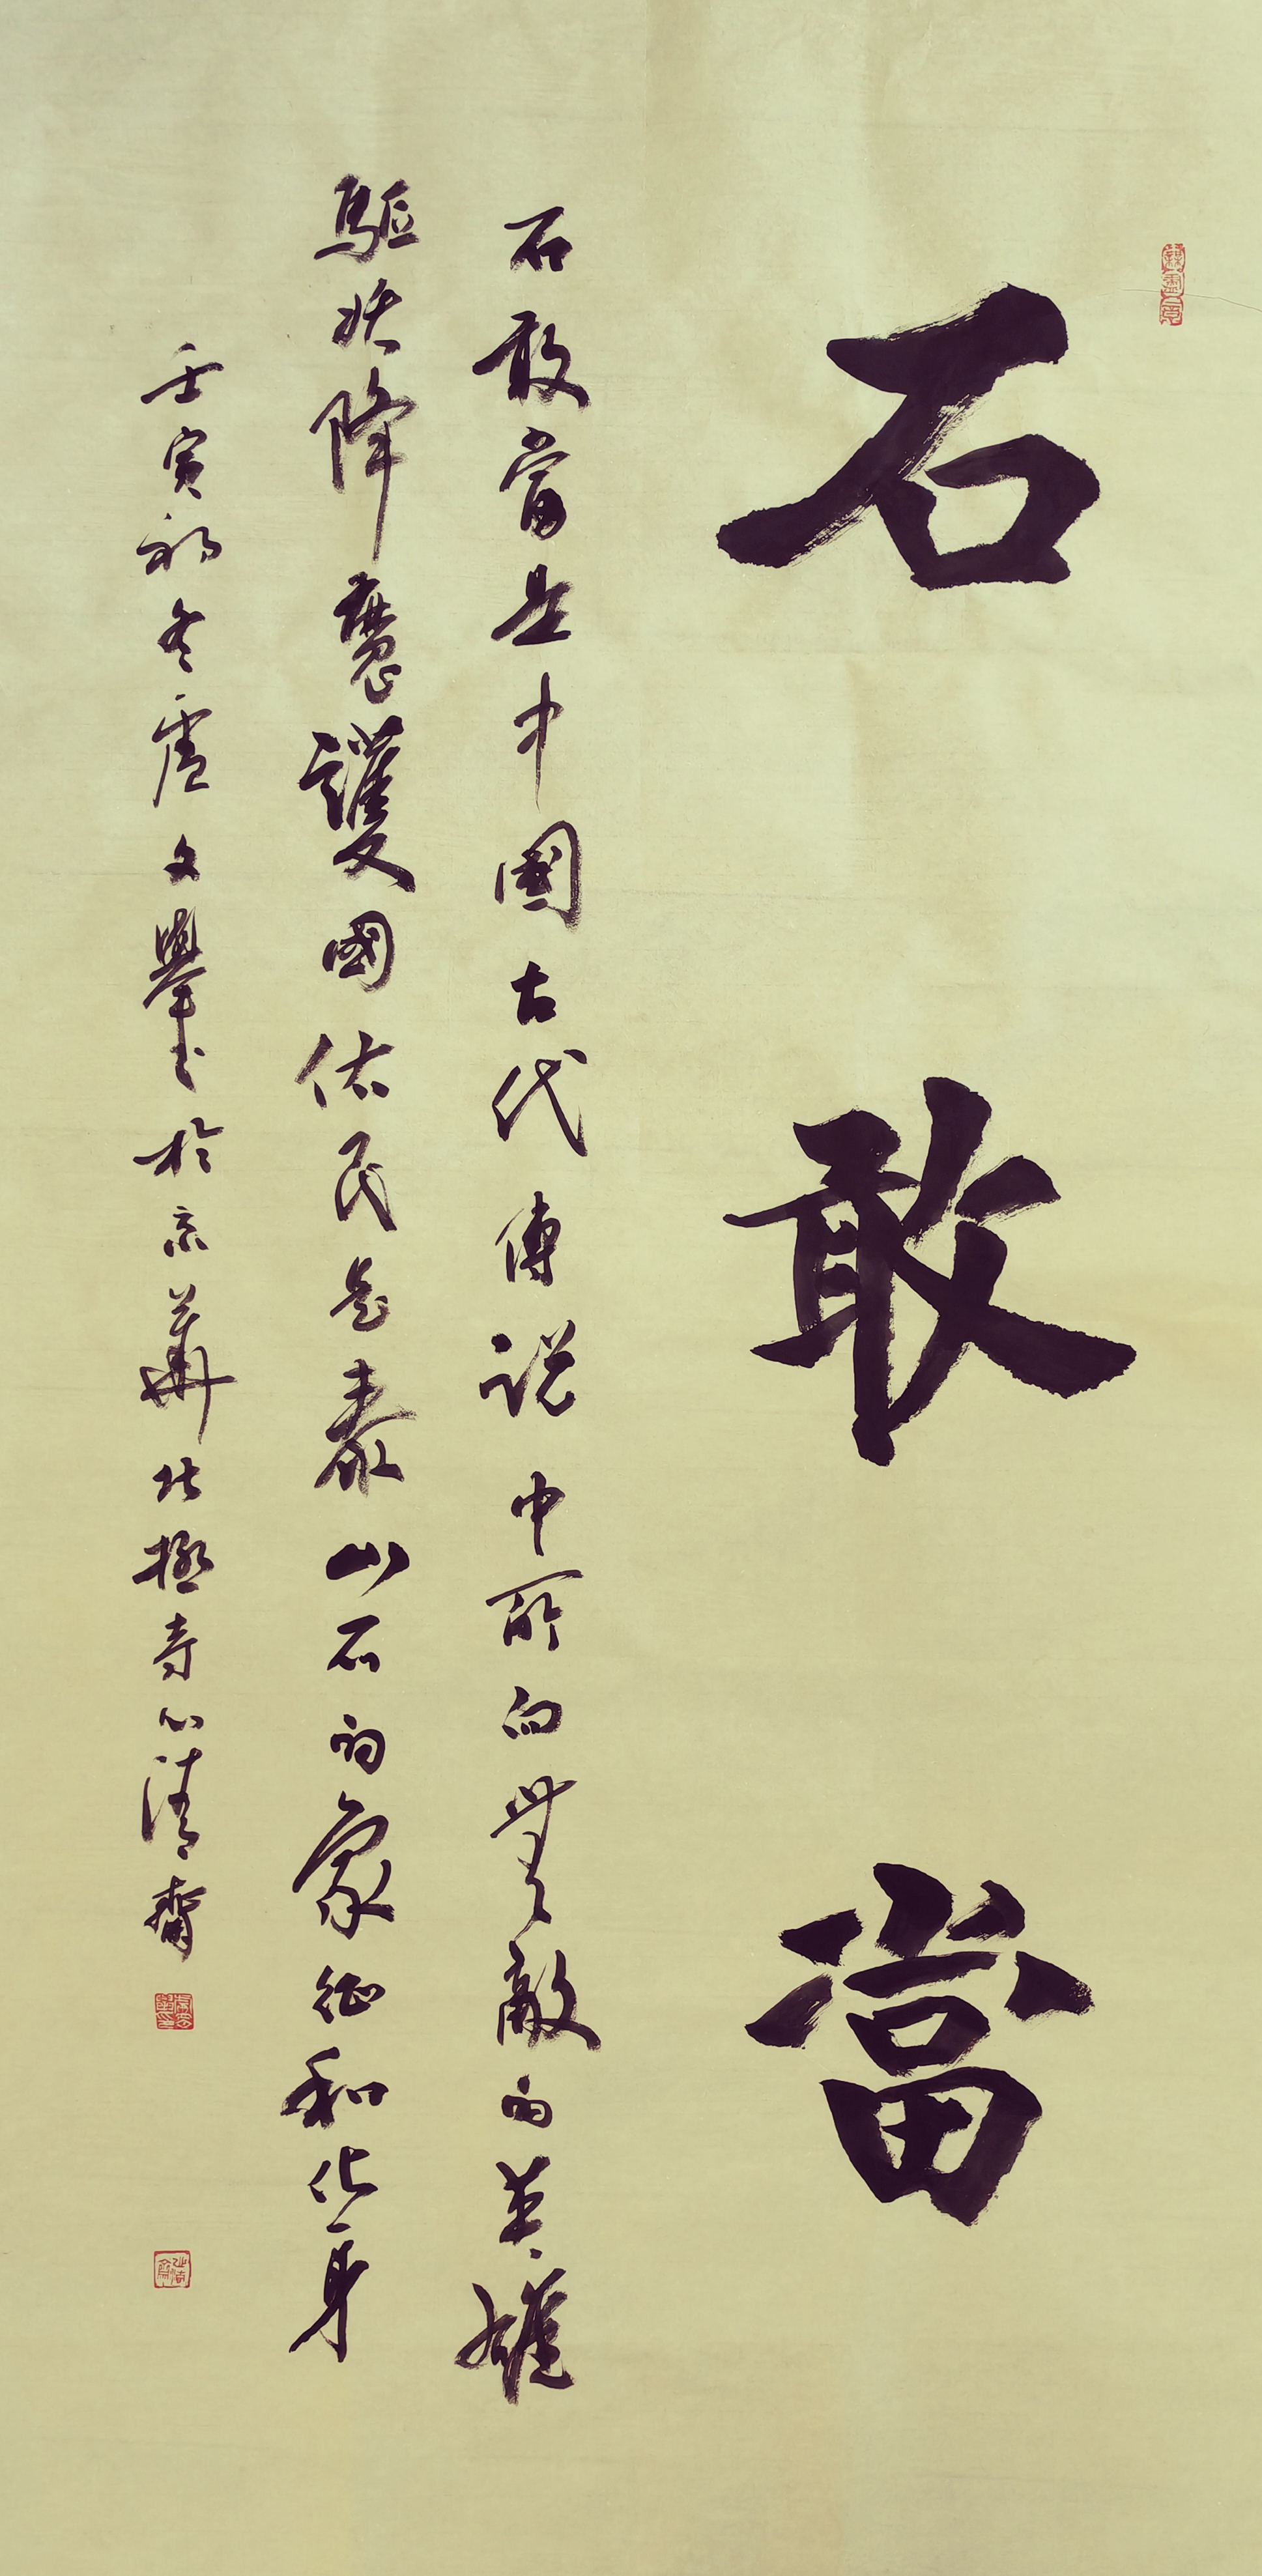 石敢當
石敢當是中國古代傳說中所向無敵的英雄
驅妖降魔護國佑民是泰山石的象征和化身
壬寅初冬盧文舉書於京華北極寺心清齋